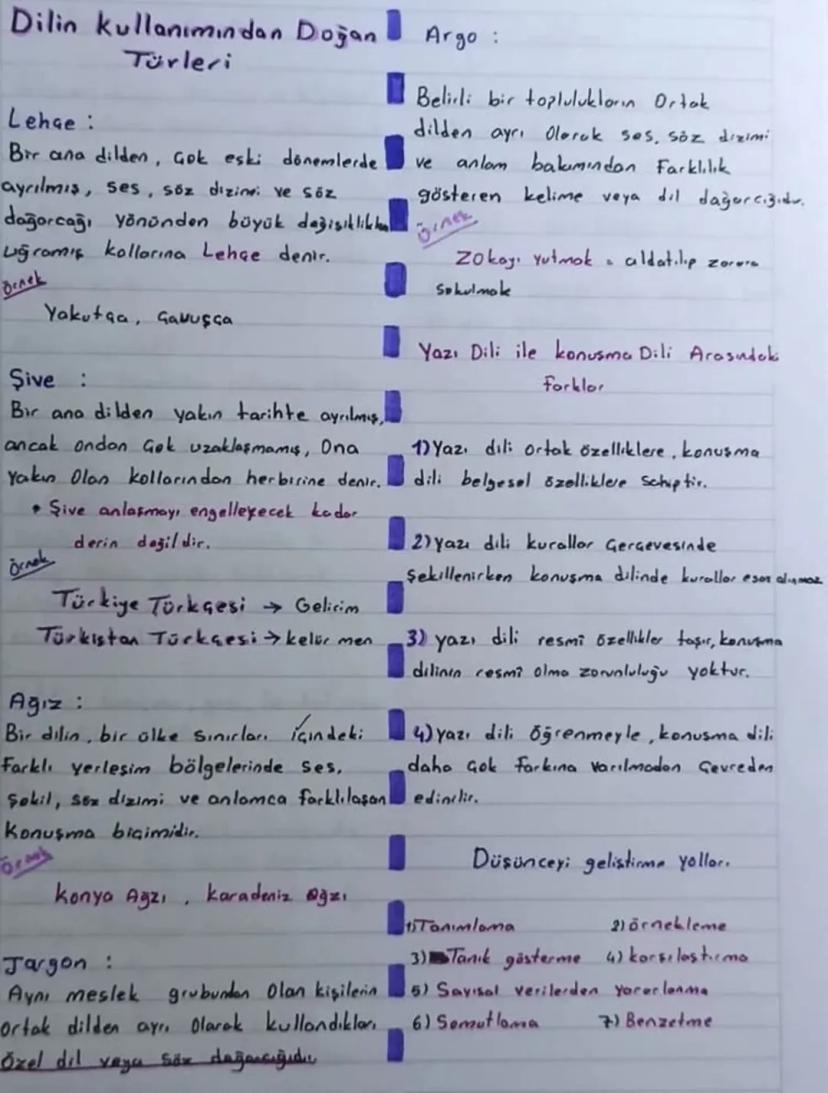 Dilin kullanımından Doğan
Türleri
Lehçe :
Bir ana dilden, çok eski dönemlerde
ayrılmış, ses, söz dizimi ve söz
dağarcağı yönünden büyük değişiklikle
uğramış kollarına Lehçe denir.
Örnek
Yakutça, Çavuşça
Şive :
Bir ana dilden yakın tarihte ayrılmış,
ancak ondan çok uzaklaşmamış, Ona
yakın olan kollarından herbirine denir.
• Şive anlaşmayı engelleyecek kadar
derin değildir.
Örnek
Türkiye Türkçesi → Gelirim
Türkistan Türkçesi → kelür men
Ağız :
Bir dilin, bir ülke sınırları içindeki
farklı yerleşim bölgelerinde ses,
şekil, söz dizimi ve anlamca farklılaşan
Konuşma biçimidir.
Örnek
Konya Ağzı, karadeniz ağzı
Jargon :
Aynı meslek grubundan olan kişilerin
ortak dilden ayrı olarak kullandıkları
özel dil veya söz dağarcığıdır
Argo :
Belirli bir toplulukların Ortak
dilden ayrı olarak ses, söz dizimi
ve anlam bakımından Farklılık
gösteren kelime veya dil dağarcığıdır.
Örnek
Zokayı yutmak = aldatılıp zarara
sokulmak
Yazı Dili ile konuşma Dili Arasındaki
farklar
1) Yazı dili ortak özelliklere, konuşma
dili belgesel özelliklere sahiptir.
2) yazı dili kurallar çerçevesinde
şekillenirken konuşma dilinde kurallar esas alınmaz
3) yazı dili resmî özellikler taşır, konuşma
dilinin resmî olma zorunluluğu yoktur.
4) yazı dili öğrenmeyle, konuşma dili
daha çok farkına varılmadan çevreden
edinilir.
Düşünceyi geliştirme yolları
1) Tanımlama 2) örnekleme
3) Tanık gösterme 4) karşılaştırma
5) Sayısal verilerden yararlanma
6) Somutlama 7) Benzetme